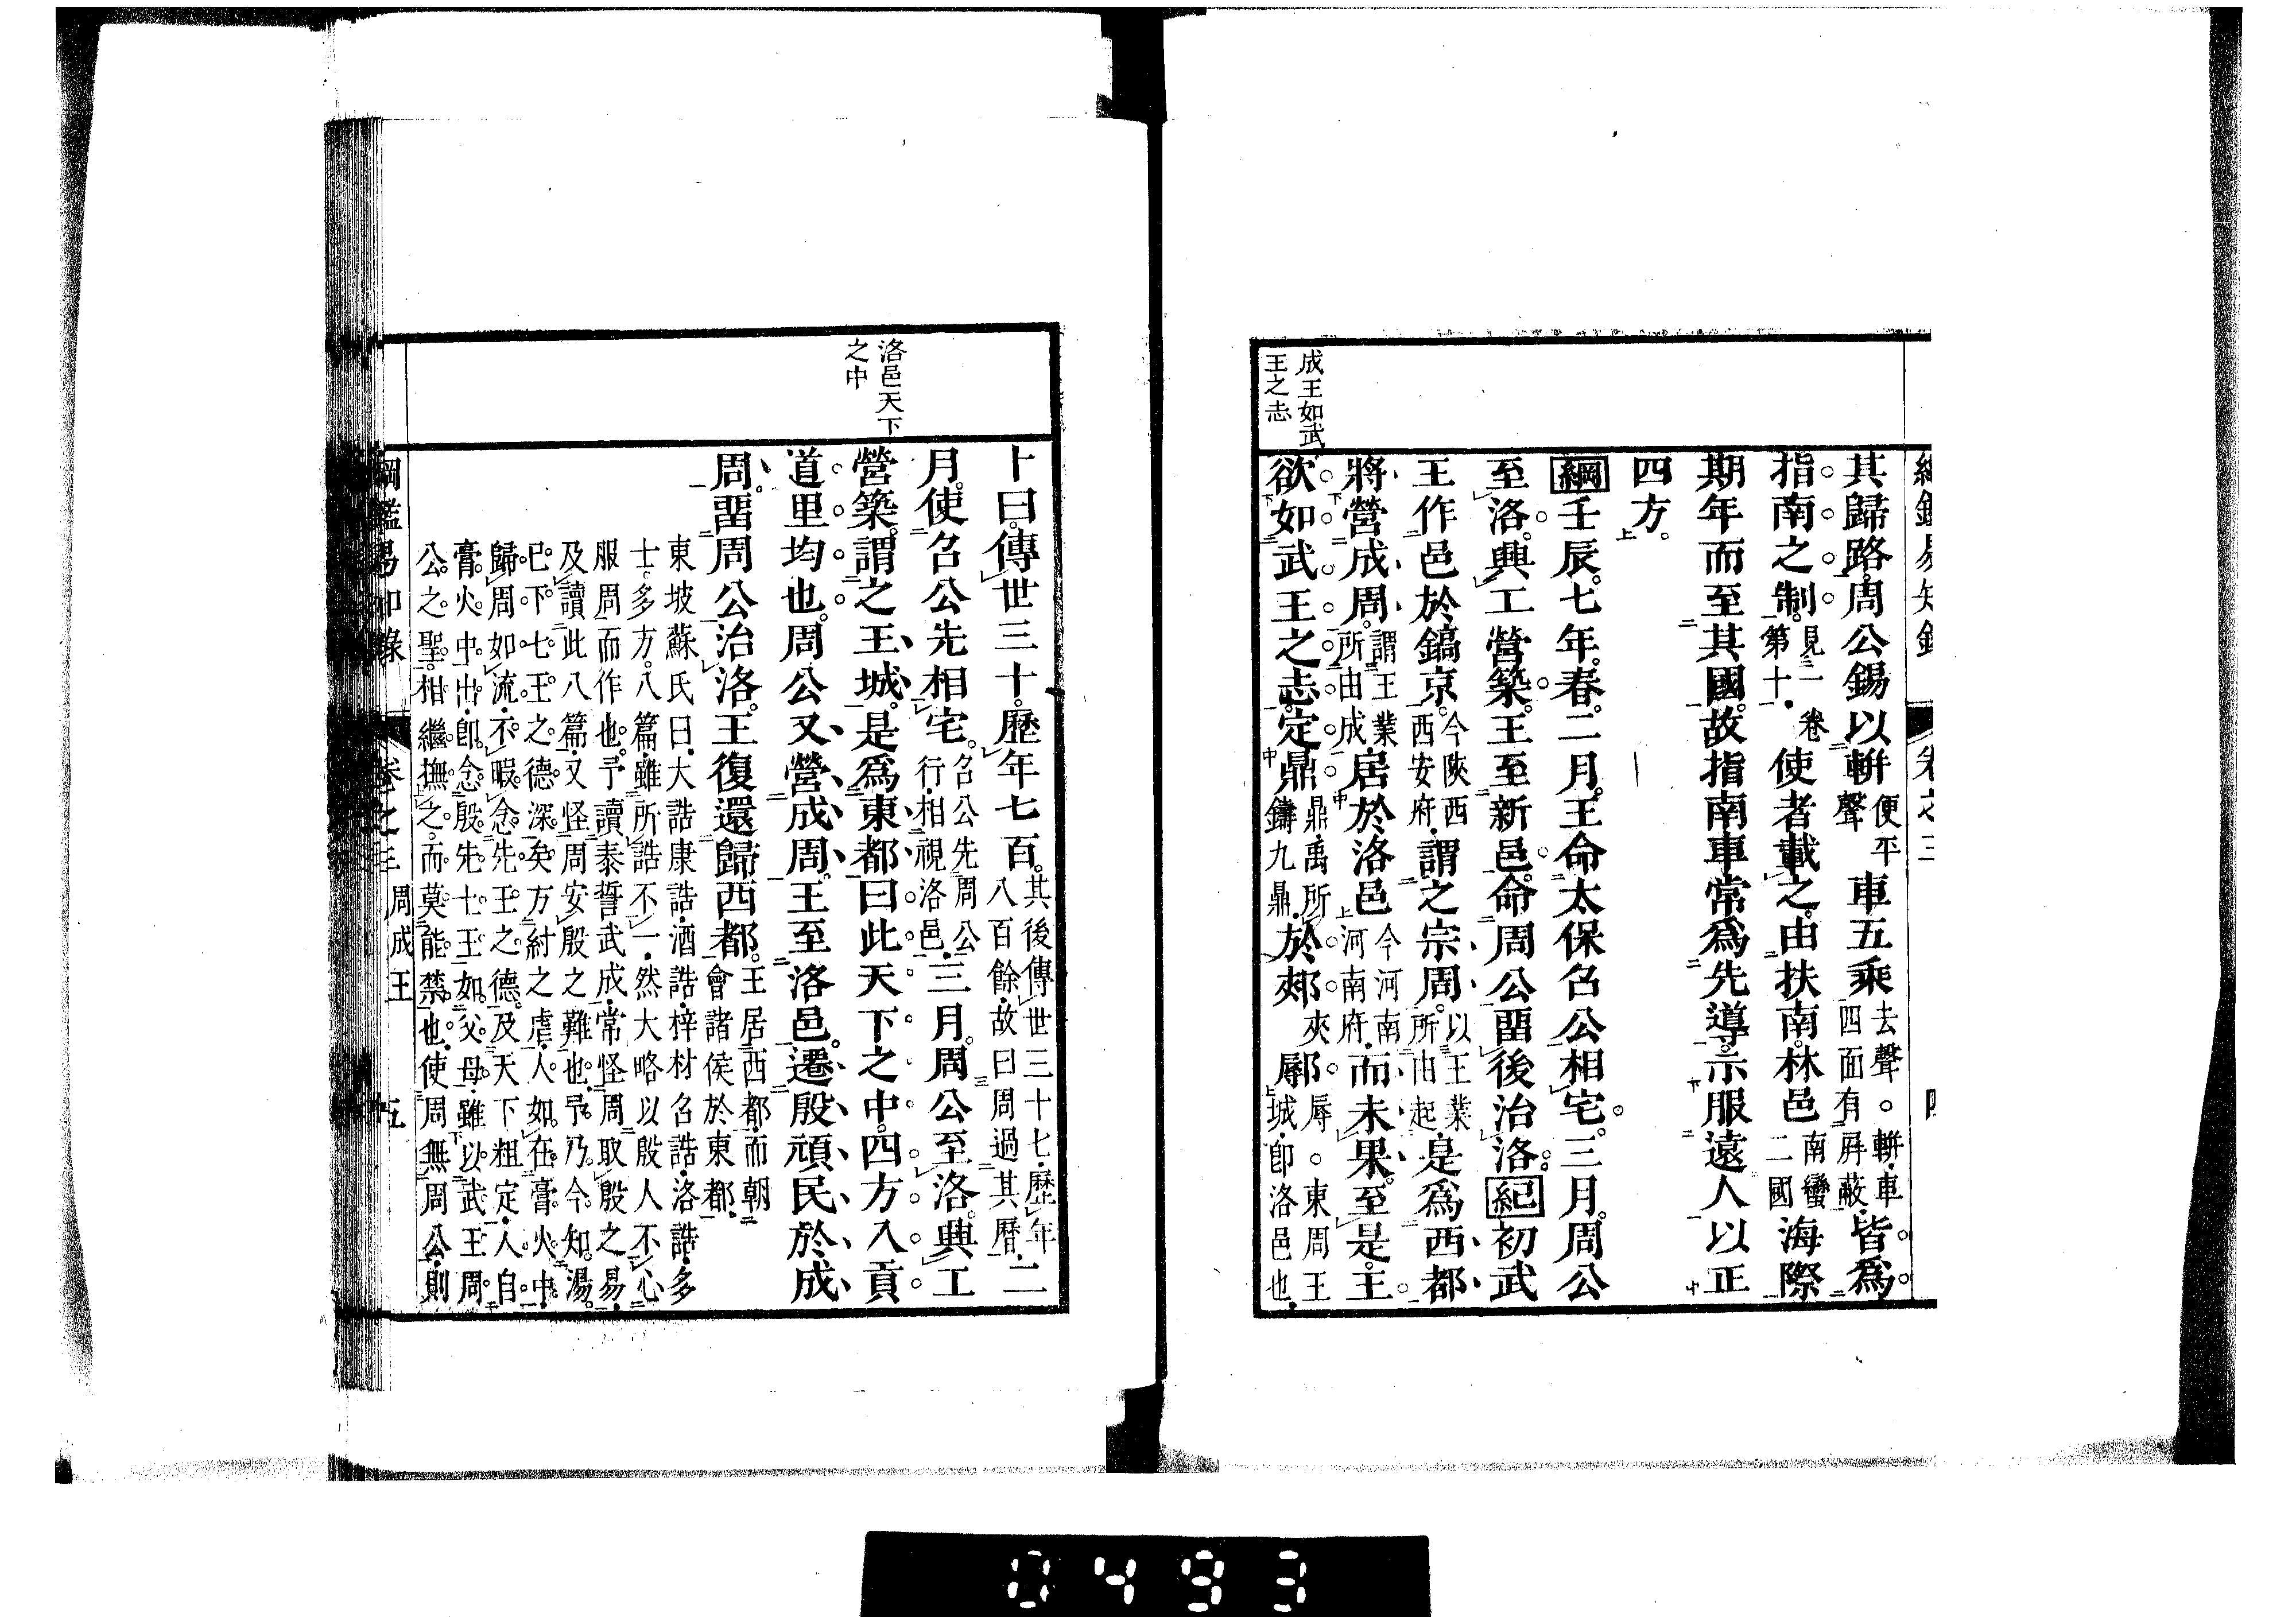 綱鑑易知錄 卷之三 四
成王如武
王之志
其歸路。周公錫以軿便平聲車五乘去聲。軿車四面有屛蔽。皆爲
指南之制。見一卷第十一。使者載之。由扶南。林邑南蠻二國海際
期年而至其國。故指南車常爲先導。示服遠人以正
四方。
綱壬辰。七年。春。二月。王命太保召公相宅。三月。周公
至洛。興工營築。王至新邑。命周公畱後治洛。紀初武
王作邑於鎬京。今陝西西安府。謂之宗周。以王業所由起。是爲西都
將營成周。謂王業所由成。居於洛邑今河南河南府。而未果。至是。王
欲如武王之志。定鼎鼎。禹所鑄九鼎。於郟夾鄏辱。東周王城。卽洛邑也。
洛邑天下
之中
卜曰。傳世三十。歷年七百。其後傳世三十七。歷年八百餘。故曰周過其曆。二
月。使召公先相宅。召公先周公行。相視洛邑。三月。周公至洛。興工
營築。謂之王城。是爲東都。曰此天下之中。四方入貢
道里均也。周公又營成周。王至洛邑。遷殷頑民於成
周。畱周公治洛。王復還歸西都。王居西都。而朝會諸侯於東都。
東坡蘇氏曰。大誥康誥。酒誥。梓材召誥。洛誥。多
士。多方。八篇。雖所誥不一。然大略以殷人不心
服周而作也。予讀泰誓武成。常怪周取殷之易。
及讀此八篇。又怪周安殷之難也。予乃今知。湯
已下七王之德深矣。方紂之虐。人如在膏火中。
歸周如流。不暇念先王之德。及天下粗定。人自
膏火中出。卽念殷先七王如父母。雖以武王周
公之聖。相繼撫之。而莫能禁也。使周無周公。則
綱鑑易知錄 卷之三 周成王 五
0493